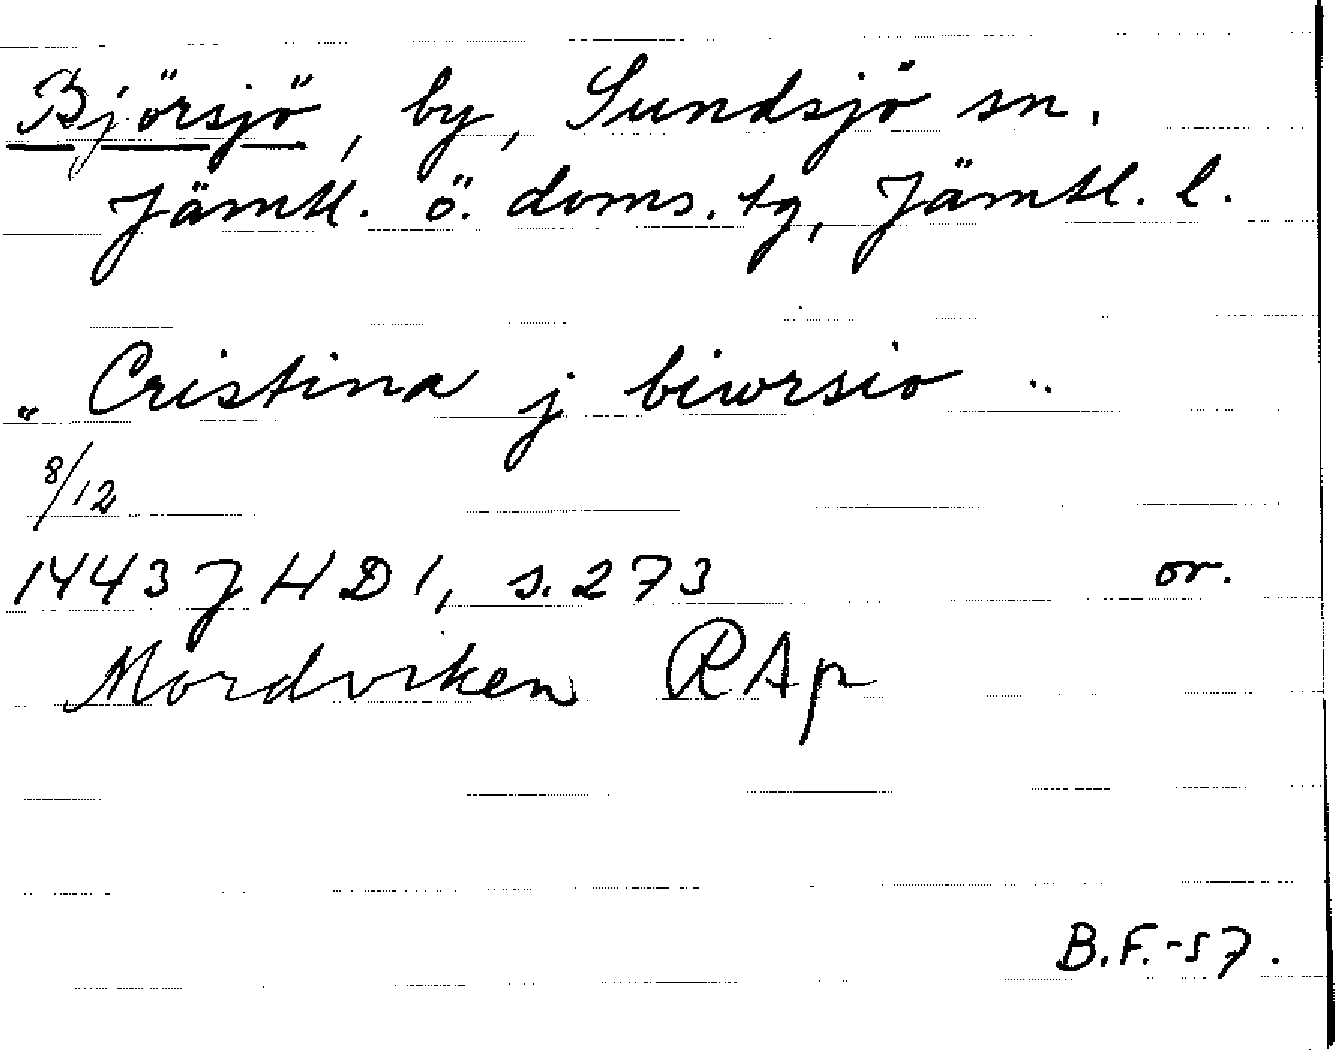 Björsjö, by, Sundsjö sn.
Jämtl. ö. doms. tg, Jämtl. l.
„ Cristina j biwrsio ..
8/12
1443 JHD 1, s. 273 or.
Mordviken RAp
B.F.-57.